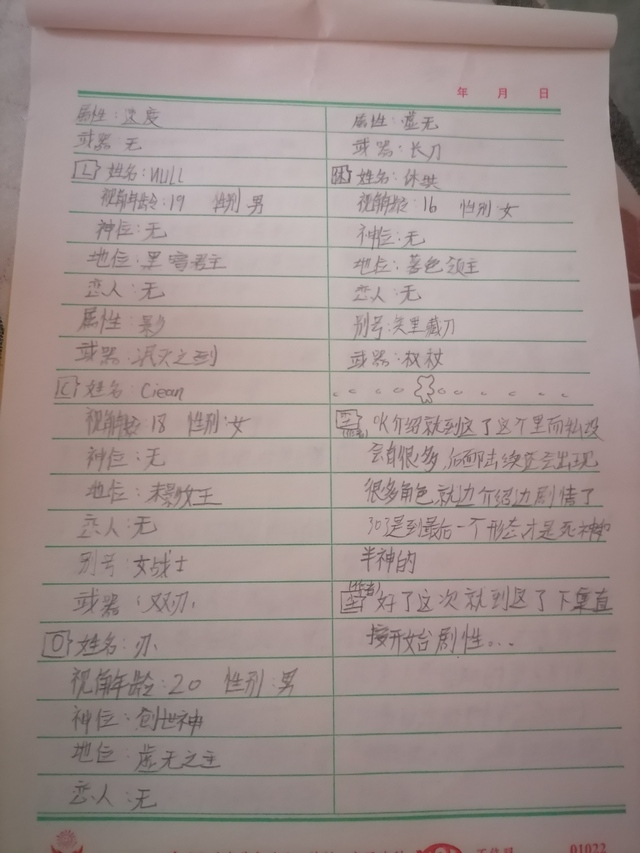 年 月 日
属性:
武器:无
姓名:NULL
视角年龄:19 性别 男
神位:无
地位:黑客君主
恋人:无
属性:影
武器:泯灭之到
C 姓名:Ciean
视角龄 18 性别:女
神位:无
地位:女王
恋人:无
别号:女战士
武器:双刃
O 姓名:办
视角年龄:20 性别:男
神位:创世神
地位:虚无之主
恋人:无
属性:虚无
武器:长刀
姓名:
视角龄:16 性别:女
神位:无
地位:暮色领主
恋人:无
别号:笑里藏刀
武器:权杖
OK介绍就到这了这个里面私设
会自很多,后面陆续还会出现
很多角色,就边介绍边剧情了
303是到最后一个形态才是死神和
半神的
好了这次就到这了下集直
接开始剧性...
01022